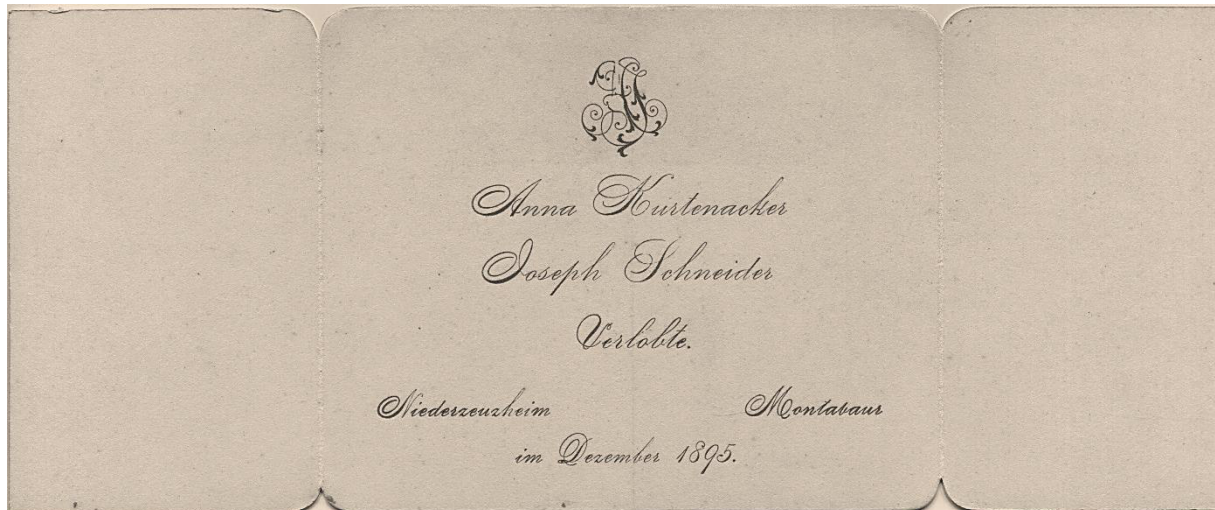 Anna Kurtenacker
Joseph Schneider
Verlobte.
Niederzeuzheim Montabaur
im Dezember 1895.